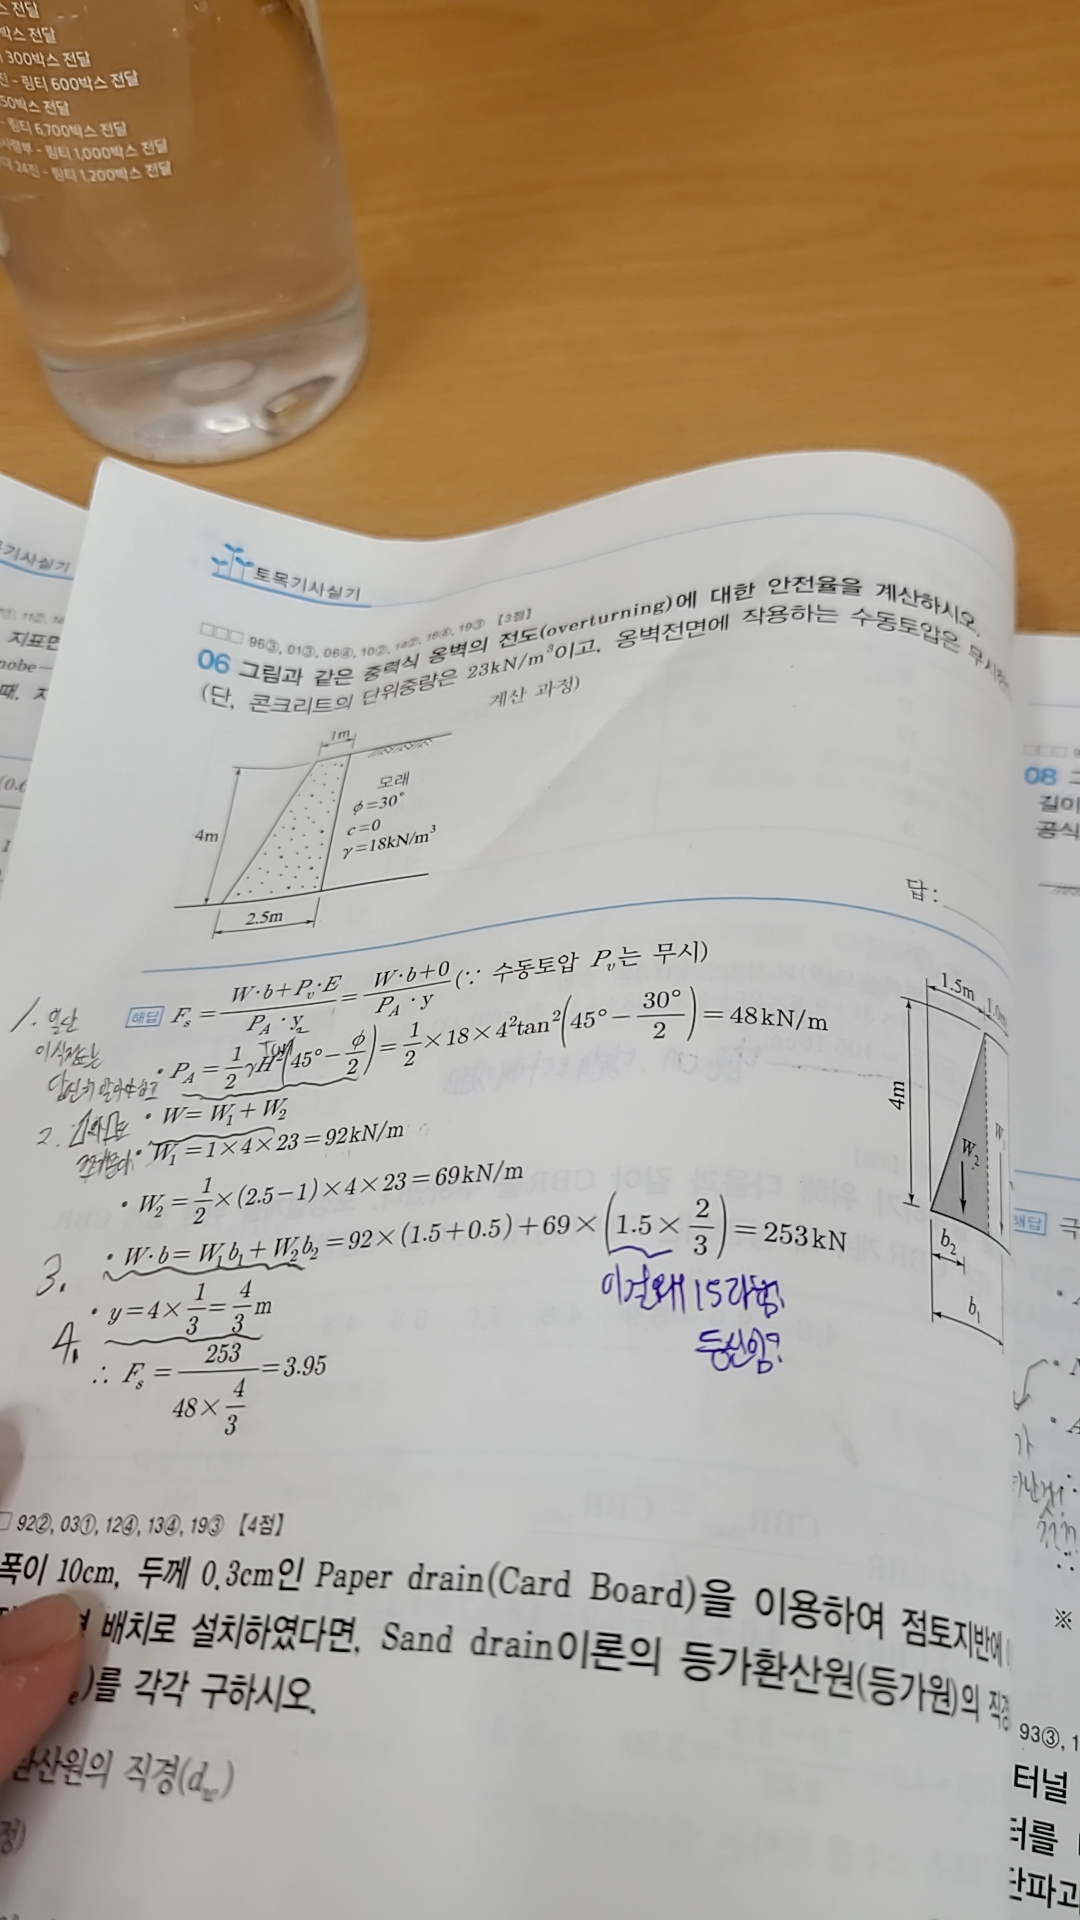 스 전달
박스 전달
300박스 전달
진 - 링티 600박스 전달
50박스 전달
- 링티 6,700박스 전달
사령부 - 링티 1,000박스 전달
24진 - 링티 1,200박스 전달
토목기사실기
□□□ 96③, 01③, 06④, 10②, 14②, 16④, 19③ 【3점】
06 그림과 같은 중력식 옹벽의 전도(overturning)에 대한 안전율을 계산하시오.
(단, 콘크리트의 단위중량은 23kN/m³이고, 옹벽전면에 작용하는 수동토압은
계산 과정)
1m
4m
모래
ϕ=30°
c=0
γ=18kN/m³
2.5m
답:
1. 일단
해답 F_s = (W·b+P_v·E)/(P_A·y) = (W·b+0)/(P_A·y) (∵ 수동토압 P_v는 무시)
Tan
• P_A = 1/2 γH²(45°− ϕ/2) = 1/2 ×18×4²tan²(45°− 30°/2) = 48kN/m
2.
• W = W₁ + W₂
• W₁ = 1×4×23 = 92kN/m
• W₂ = 1/2 ×(2.5−1)×4×23 = 69kN/m
3. • W·b = W₁b₁ + W₂b₂ = 92×(1.5+0.5)+69×(1.5× 2/3) = 253kN
이걸왜 1.5라함.
등신임?
• y = 4× 1/3 = 4/3 m
4.
∴ F_s = 253/(48× 4/3) = 3.95
1.5m
4m
W₂
b₂
b₁
92②, 03①, 12④, 13④, 19③ 【4점】
폭이 10cm, 두께 0.3cm인 Paper drain(Card Board)을 이용하여 점토지반에
배치로 설치하였다면, Sand drain이론의 등가환산원(등가원)의 직경
)를 각각 구하시오.
환산원의 직경(d_w)
지표면
때,
08
길이
공식
해답
※
93③, 1
터널